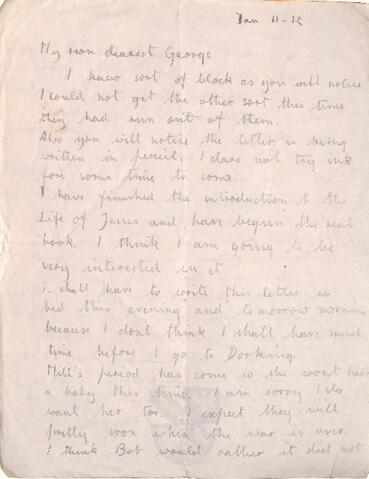 Jan 11-12
My own dearest George
I knew sort of block as you will notice
I could not get the other sort this time
they had run out of them.
Also you will notice the letter is being
written in pencil. I dare not try ink
fore some time to come.
I have finished the introduction to the
Life of Jesus and have begun the real
book. I think I am going to be
very interested in it
I shall have to write this letter in
bed this evening and tomorrow morning
because I dont think I shall have much
time before I go to Dorking.
Mill's period has come so she wont have
a baby this time. I am sorry I do
want her too. I expect they will
pretty soon when the war is over.
I think Bob would rather it did not